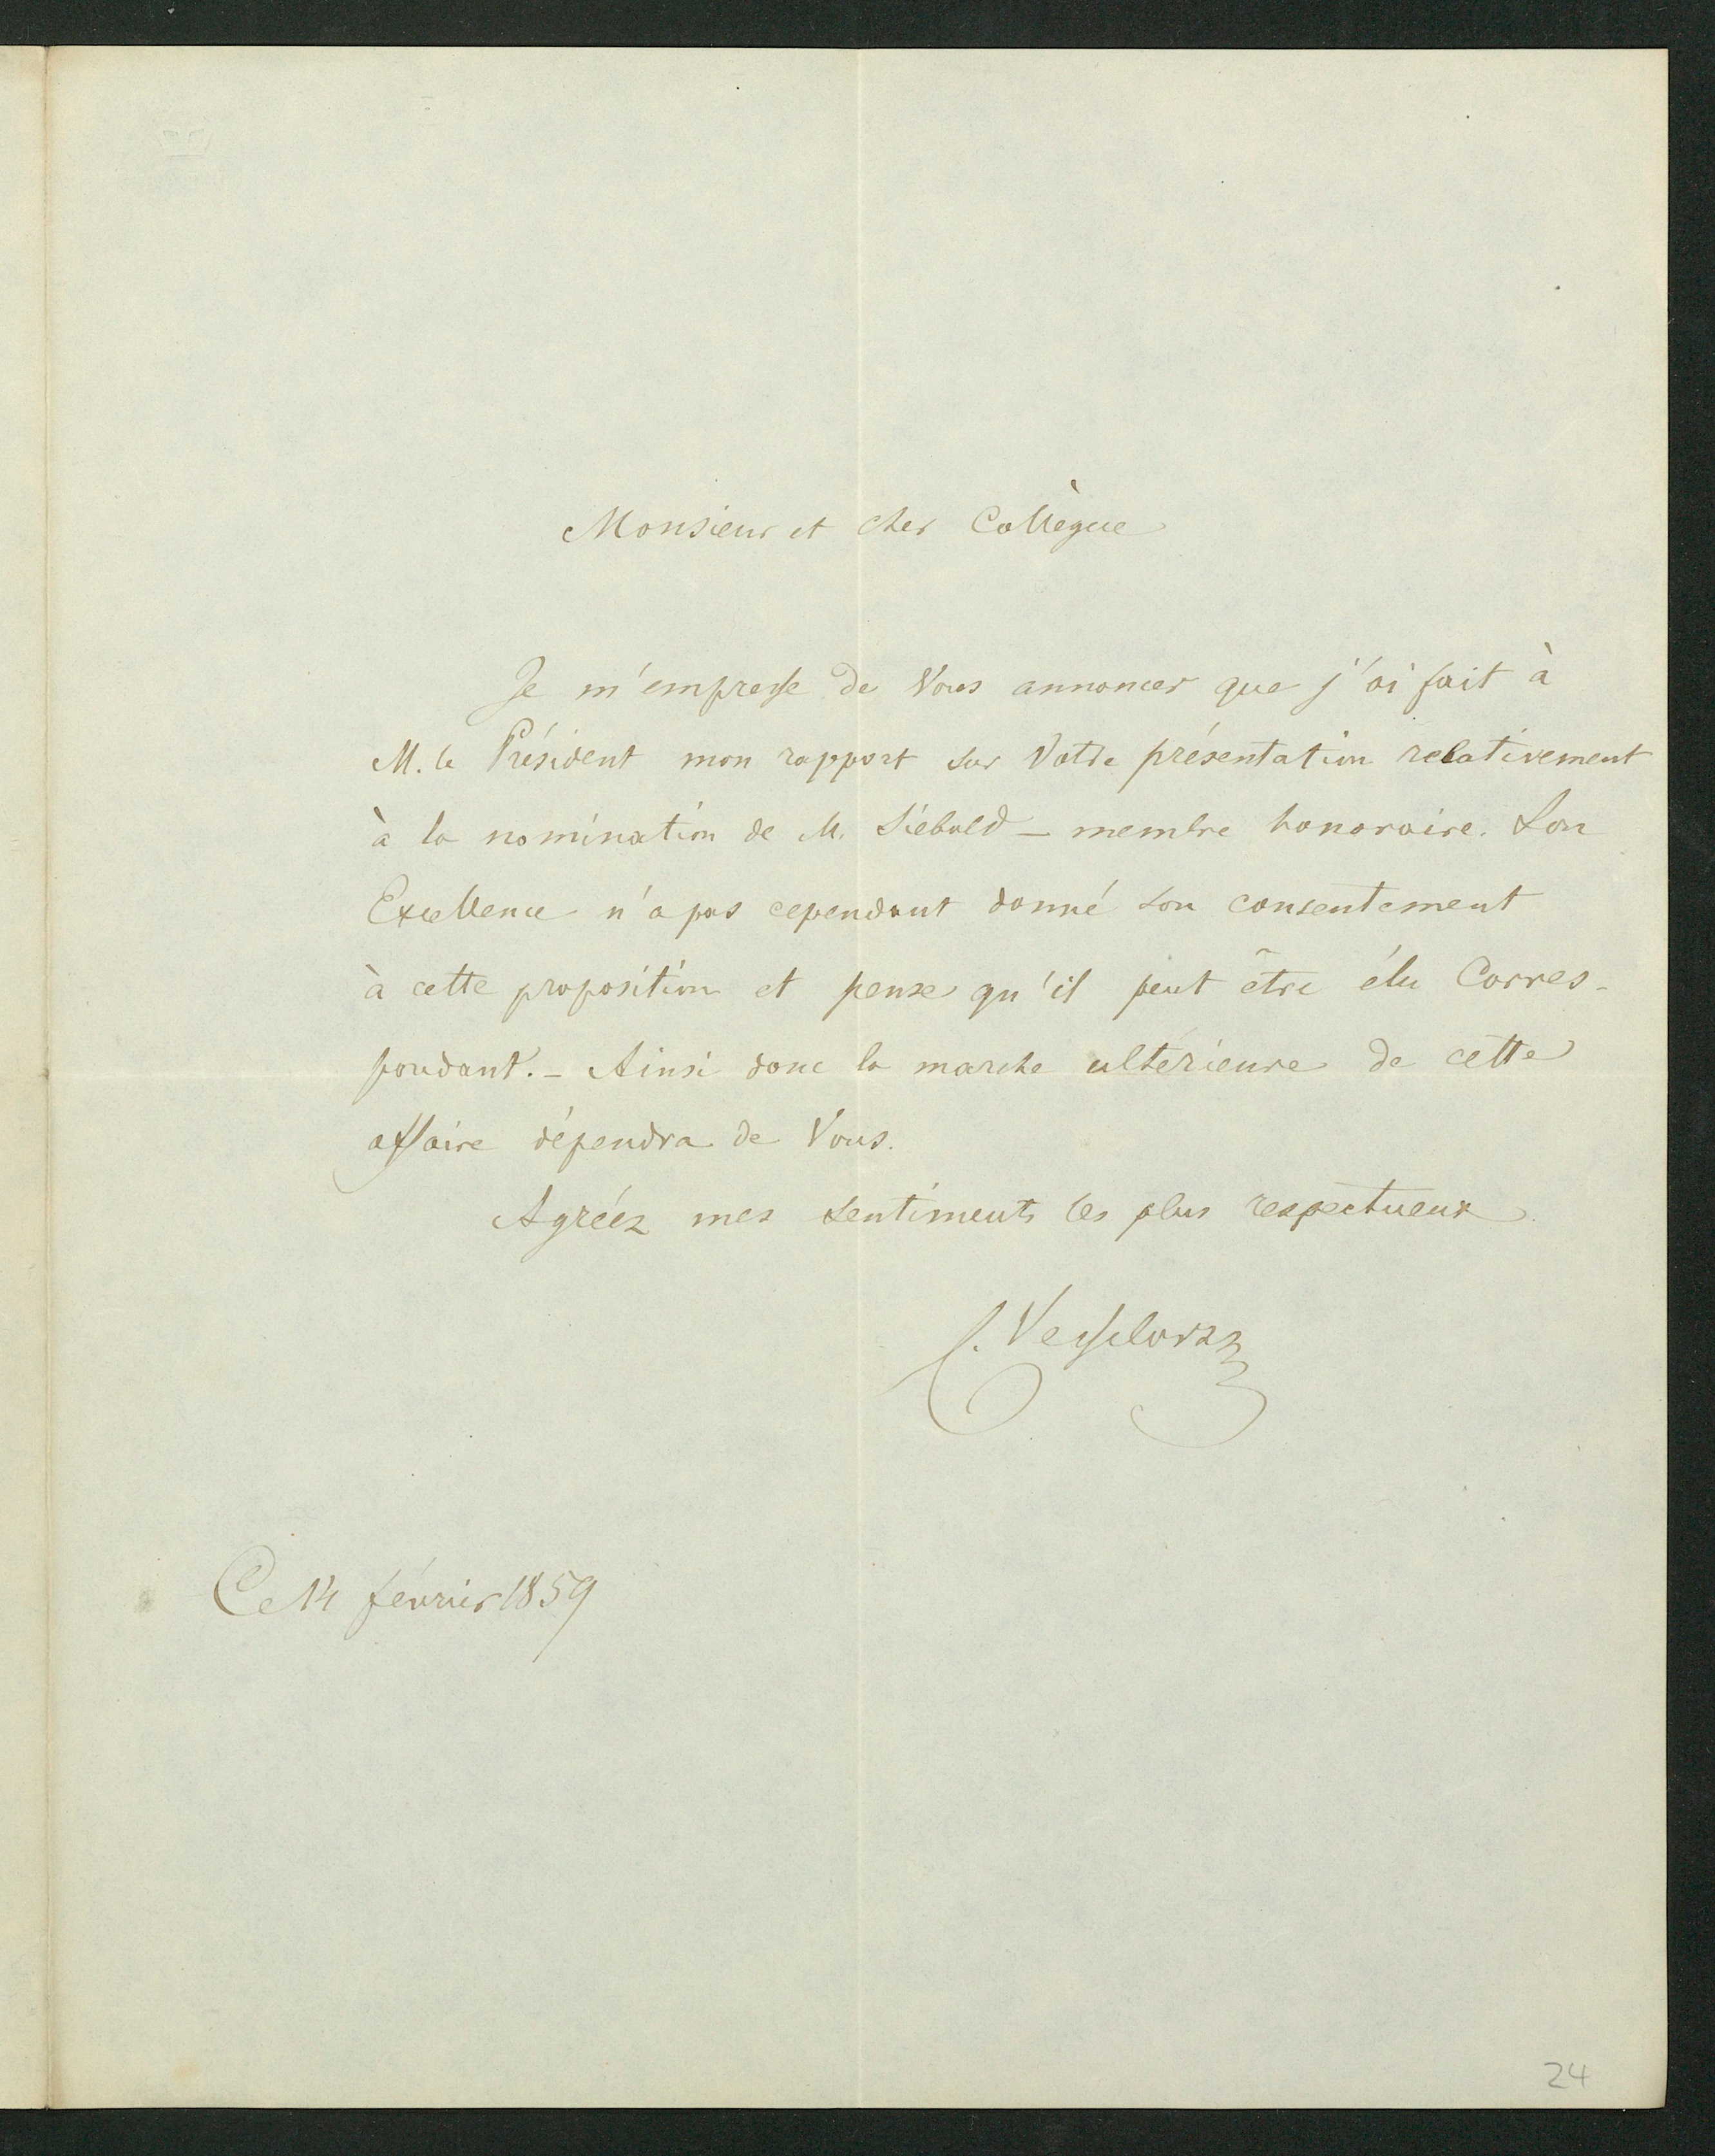 Monsieur et cher Collègue
Je m'empresse de Vous annoncer que j'ai fait à
M. le Président mon rapport sur Votre présentation relativement
à la nomination de M. Siebold – membre honoraire. Son
Excellence n'a pas cependant donné son consentement
à cette proposition et pense qu'il peut être élu Corres-
pondant. – Ainsi donc la marche ultérieure de cette
affaire dépendra de Vous.
Agréez mes sentiments les plus respectueux.
C. Vesselovsky
Ce 14 février 1859
24